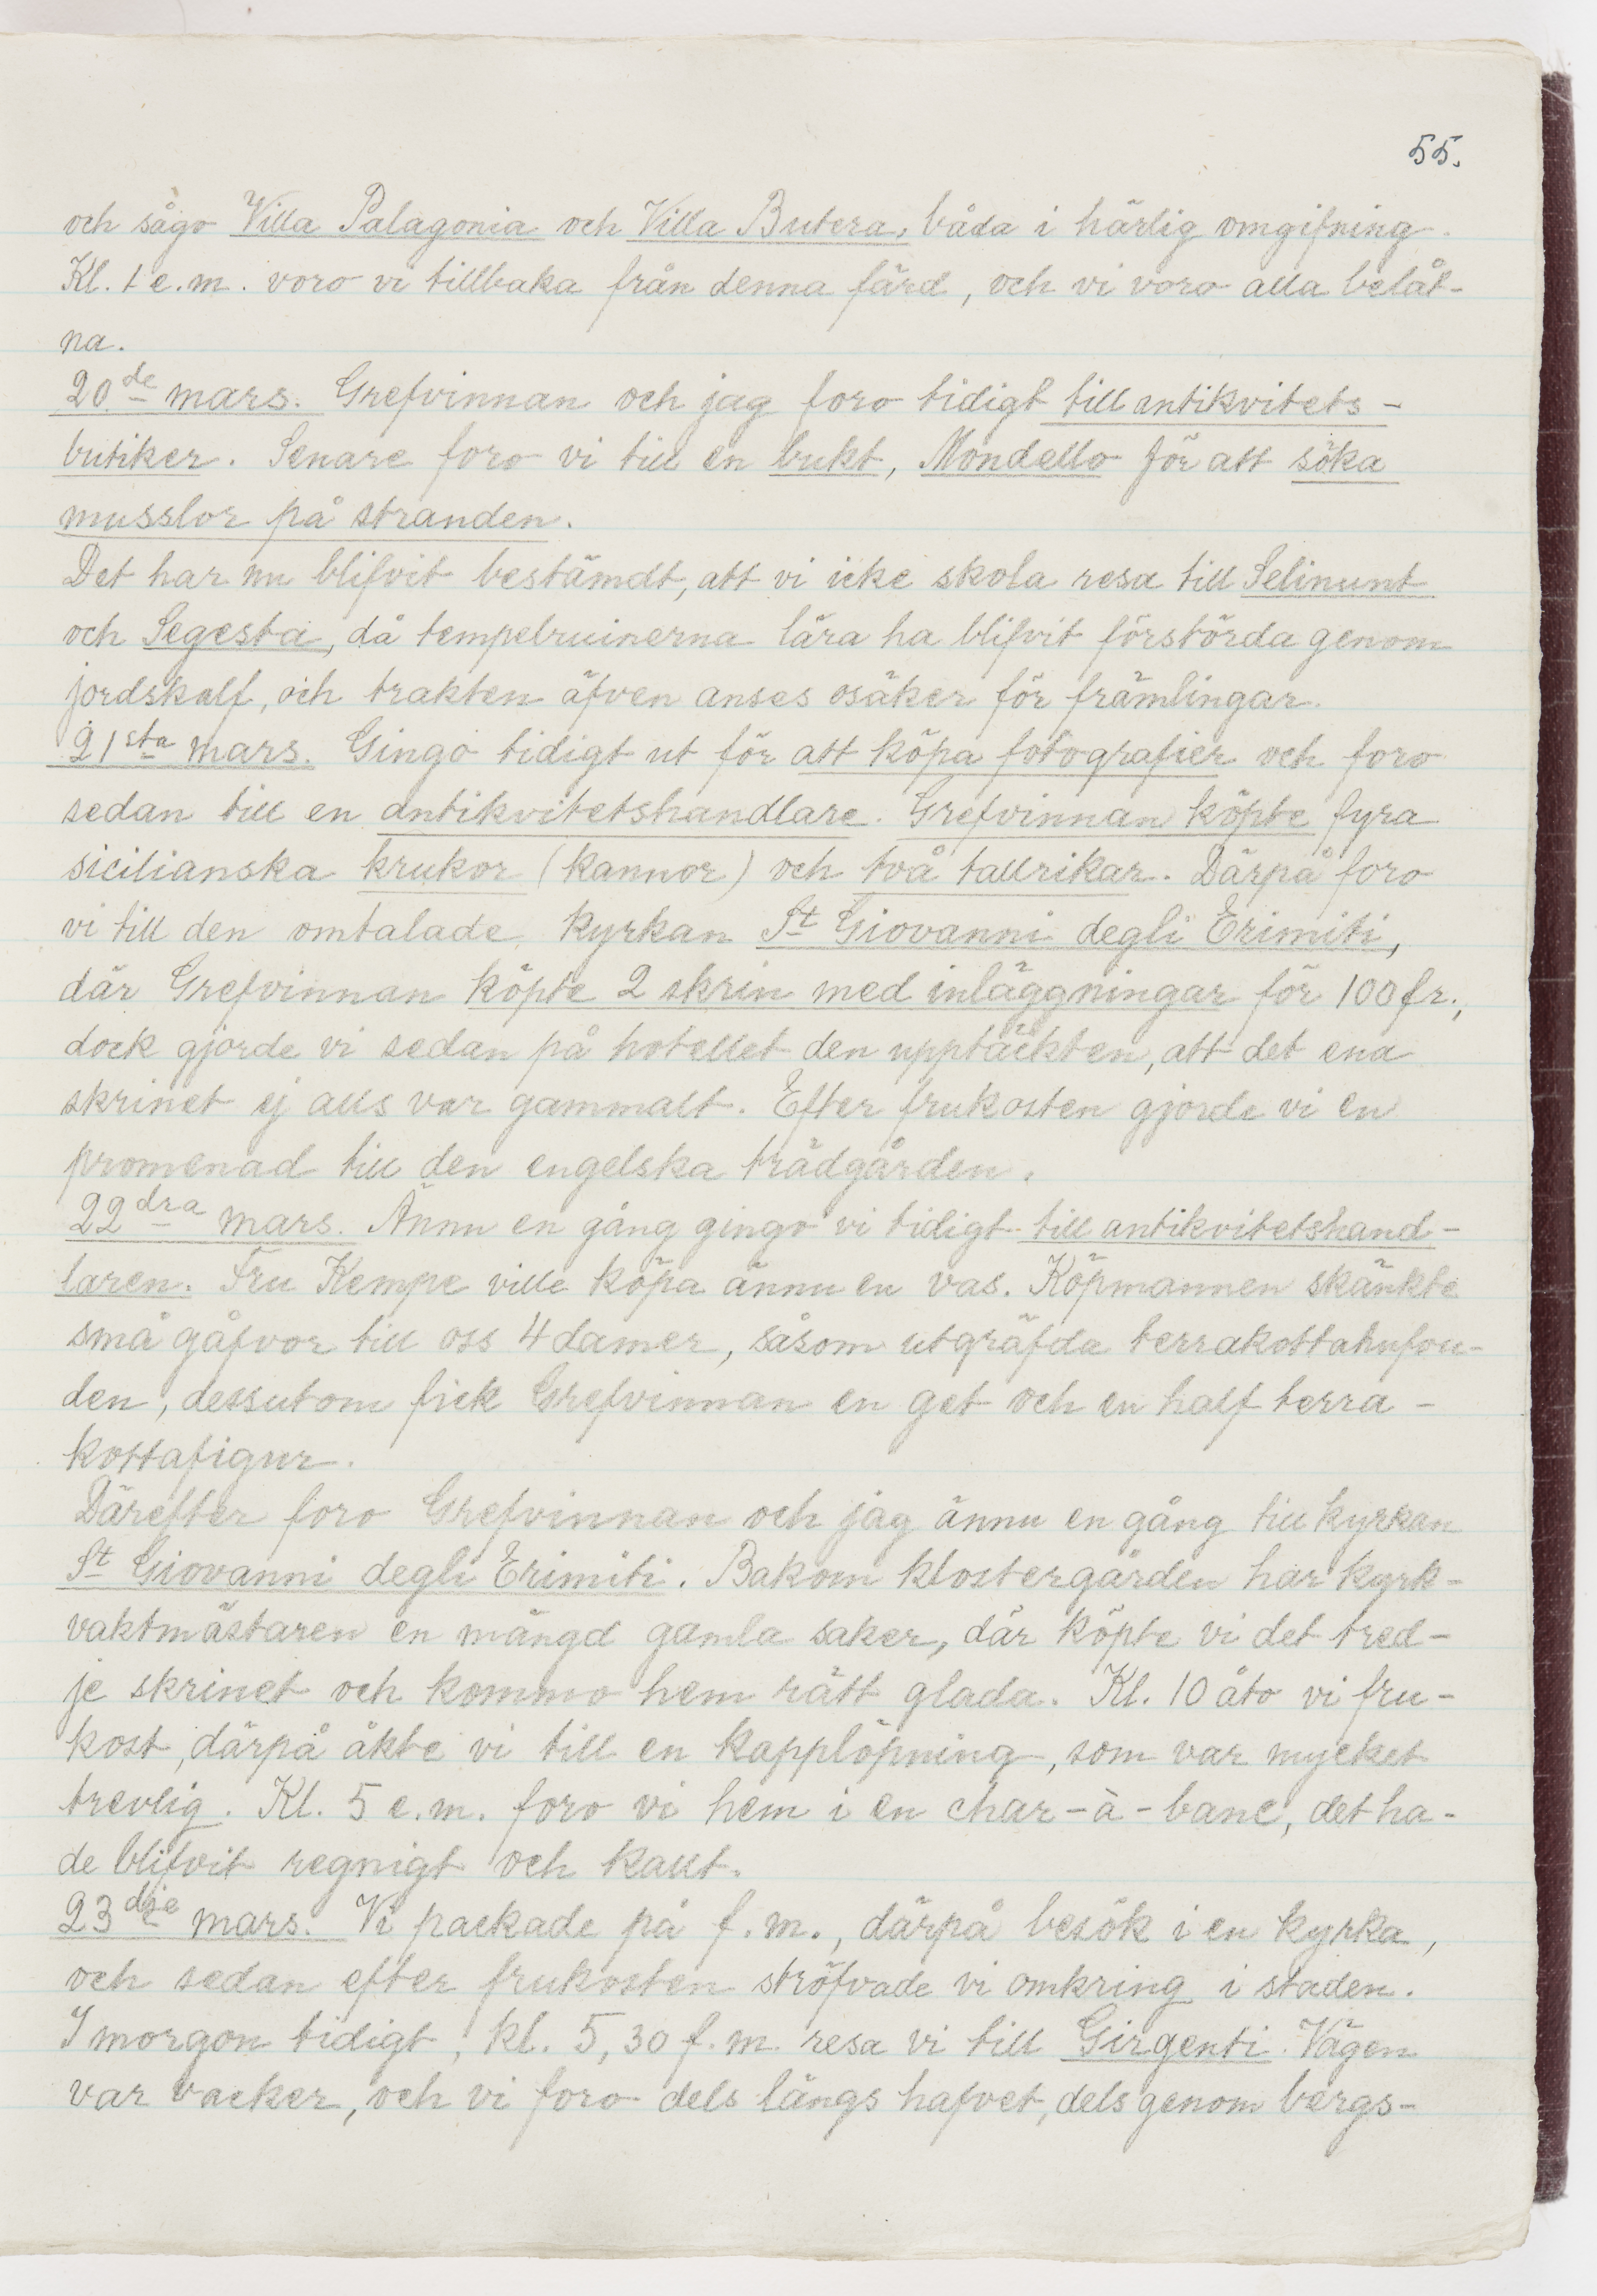 55.
och sågo Villa Palagonia och Villa Butera, båda i härlig omgifning.
Kl. 1 e.m. voro vi tillbaka från denna färd, och vi voro alla belåt-
na.
20de mars. Grefvinnan och jag foro tidigt till antikvitets-
butiker. Senare foro vi till en bukt, Mondello för att söka
musslor på stranden.
Det har nu blifvit bestämdt, att vi icke skola resa till Selinunt
och Segesta, då tempelruinerna lära ha blifvit förstörda genom
jordskalf, och trakten äfven anses osäker för främlingar.
21sta mars. Gingo tidigt ut för att köpa fotografier och foro
sedan till en antikvitetshandlare. Grefvinnan köpte fyra
sicilianska krukor (kannor) och två tallrikar. Därpå foro
vi till den omtalade kyrkan St Giovanni degli Erimiti,
där Grefvinnan köpte 2 skrin med inläggningar för 100 fr.,
dock gjorde vi sedan på hotellet den upptäckten, att det ena
skrinet ej alls var gammalt. Efter frukosten gjorde vi en
promenad till den engelska trädgården.
22dra mars. Ännu en gång gingo vi tidigt till antikvitetshand-
laren. Fru Kempe ville köpa ännu en vas. Köpmannen skänkte
små gåfvor till oss 4 damer, såsom utgräfda terrakottahufvu-
den, dessutom fick Grefvinnan en get och en half terra-
kottafigur.
Därefter foro Grefvinnan och jag ännu en gång till kyrkan
St Giovanni degli Erimiti. Bakom klostergården har kyrk-
vaktmästaren en mängd gamla saker, där köpte vi det tred-
je skrinet och kommo hem rätt glada. Kl. 10 åto vi fru-
kost, därpå åkte vi till en kapplöpning, som var mycket
trevlig. Kl. 5 e.m. foro vi hem i en char-à-banc, det ha-
de blifvit regnigt och kallt.
23dje mars. Vi packade på f.m., därpå besök i en kyrka,
och sedan efter frukosten ströfvade vi omkring i staden.
I morgon tidigt, kl. 5,30 f.m. resa vi till Girgenti. Vägen
var vacker, och vi foro dels längs hafvet, dels genom bergs-